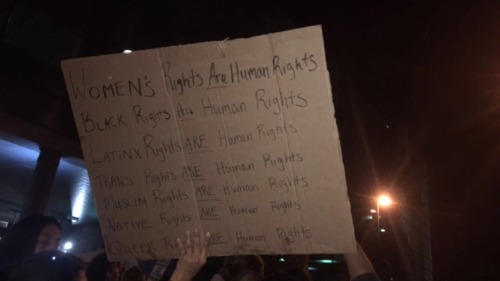 WOMEN'S Rights Are Human Rights
BLACK Rights Are Human Rights
LATINX Rights ARE Human Rights
TRANS Rights ARE Human Rights
MUSLIM Rights ARE Human Rights
NATIVE Rights ARE Human Rights
QUEER ARE Human Rights